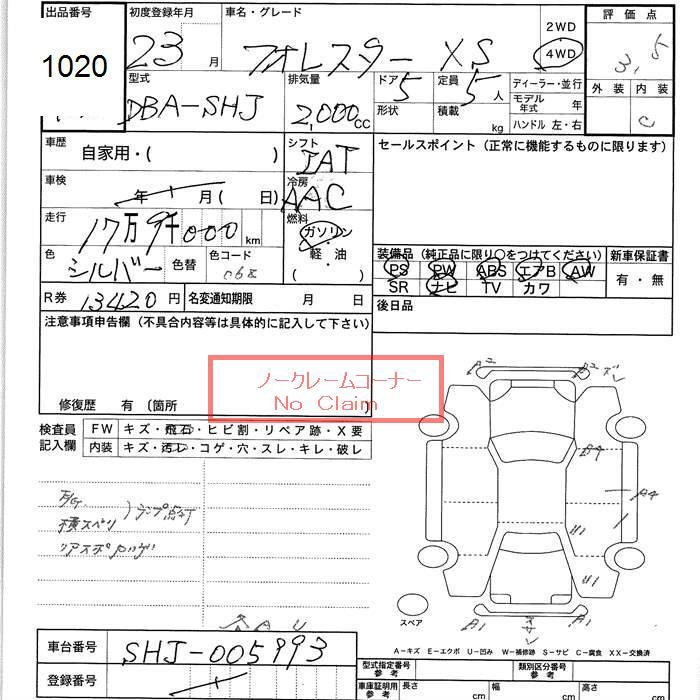 出品番号 初度登録年月 車名・グレード 2WD 評価点
1020 23 月 フォレスター XS 4WD 3.5
型式 排気量 ドア 定員 ディーラー・並行 外装 内装
DBA-SHJ 2,000 CC 5 5 人 モデル年式 年 C
形状 積載 kg ハンドル 左・右
車歴 自家用・( ) シフト IAT セールスポイント (正常に機能するものに限ります)
車検 年 月 ( 日) 冷房 AAC
走行 17万9千000 km 燃料 ガソリン・軽油
色 シルバー 色替 色コード 装備品 (純正品に限り○をつけてください) 新車保証書
PS PW ABS エアB AW 有・無
SR ナビ TV カワ
R券 13420 円 名変通知期限 月 日 後日品
注意事項申告欄 (不具合内容等は具体的に記入して下さい)
ノークレームコーナー
No Claim
修復歴 有 〔箇所
検査員記入欄 FW キズ・飛石・ヒビ割・リペア跡・X要
内装 キズ・汚レ・コゲ・穴・スレ・キレ・破レ
F/G. ランプ点灯
横スベリ
A2
B4
A4
U1
U1
A1
A1
スペア
A-キズ E-エクボ U-凹み W-補修跡 S-サビ C-腐食 XX-交換済
車台番号 SHJ-005993
型式指定番号 参考 類別区分番号 参考
登録番号
車庫証明用 参考 長さ cm 幅 cm 高さ cm